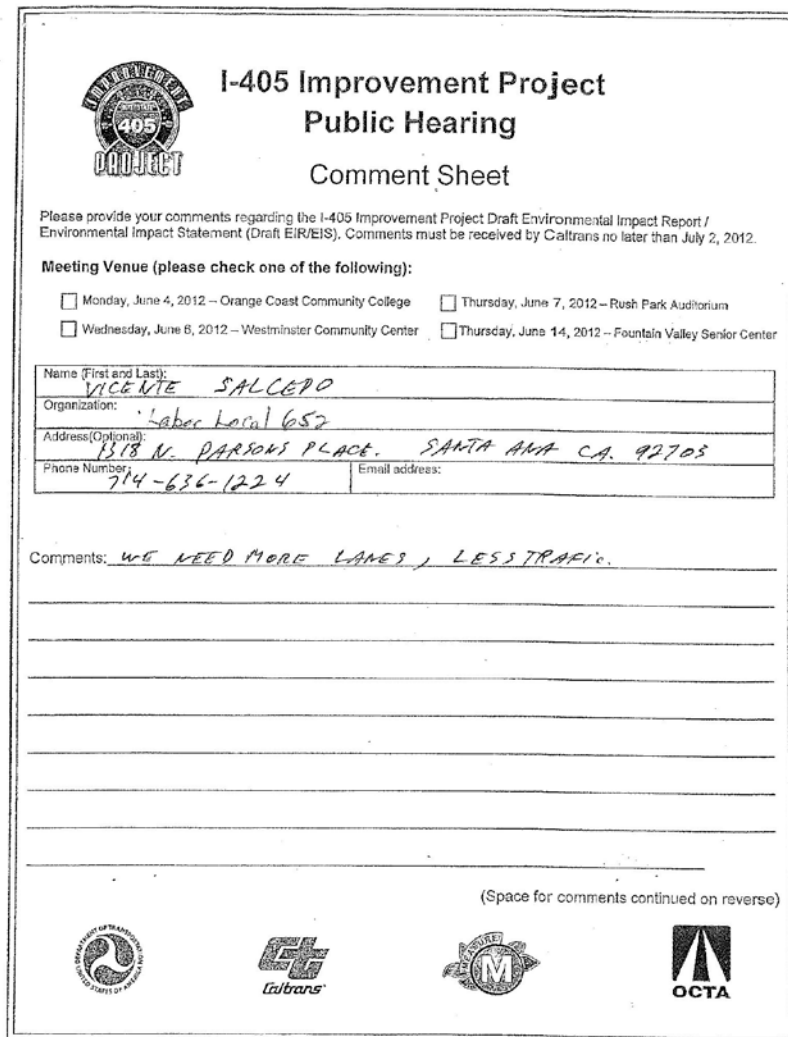 IMPROVEMENT
INTERSTATE
405
PROJECT
I-405 Improvement Project
Public Hearing
Comment Sheet
Please provide your comments regarding the I-405 Improvement Project Draft Environmental Impact Report /
Environmental Impact Statement (Draft EIR/EIS). Comments must be received by Caltrans no later than July 2, 2012.
Meeting Venue (please check one of the following):
Monday, June 4, 2012 – Orange Coast Community College
Thursday, June 7, 2012 – Rush Park Auditorium
Wednesday, June 6, 2012 – Westminster Community Center
Thursday, June 14, 2012 – Fountain Valley Senior Center
Name (First and Last):
VICENTE SALCEDO
Organization:
Labor Local 652
Address(Optional):
1318 N. PARSONS PLACE. SANTA ANA CA. 92703
Phone Number:
714-636-1224
Email address:
Comments: WE NEED MORE LANES, LESS TRAFIC.
(Space for comments continued on reverse)
DEPARTMENT OF TRANSPORTATION
UNITED STATES OF AMERICA
Caltrans
MEASURE
M
OCTA